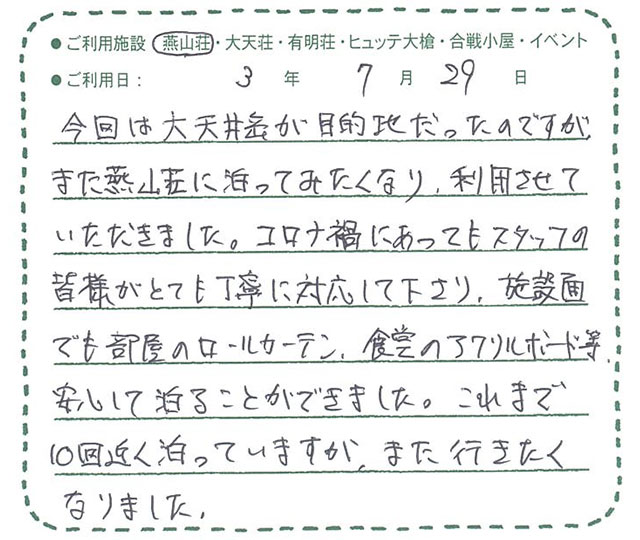 ●ご利用施設 燕山荘・大天荘・有明荘・ヒュッテ大槍・合戦小屋・イベント
●ご利用日： 3 年 7 月 29 日
今回は大天井岳が目的地だったのですが、
また燕山荘に泊ってみたくなり、利用させて
いただきました。コロナ禍にあってもスタッフの
皆様がとても丁寧に対応して下さり、施設面
でも部屋のロールカーテン、食堂のアクリルボード等、
安心して泊ることができました。これまで
10回近く泊っていますが、また行きたく
なりました。